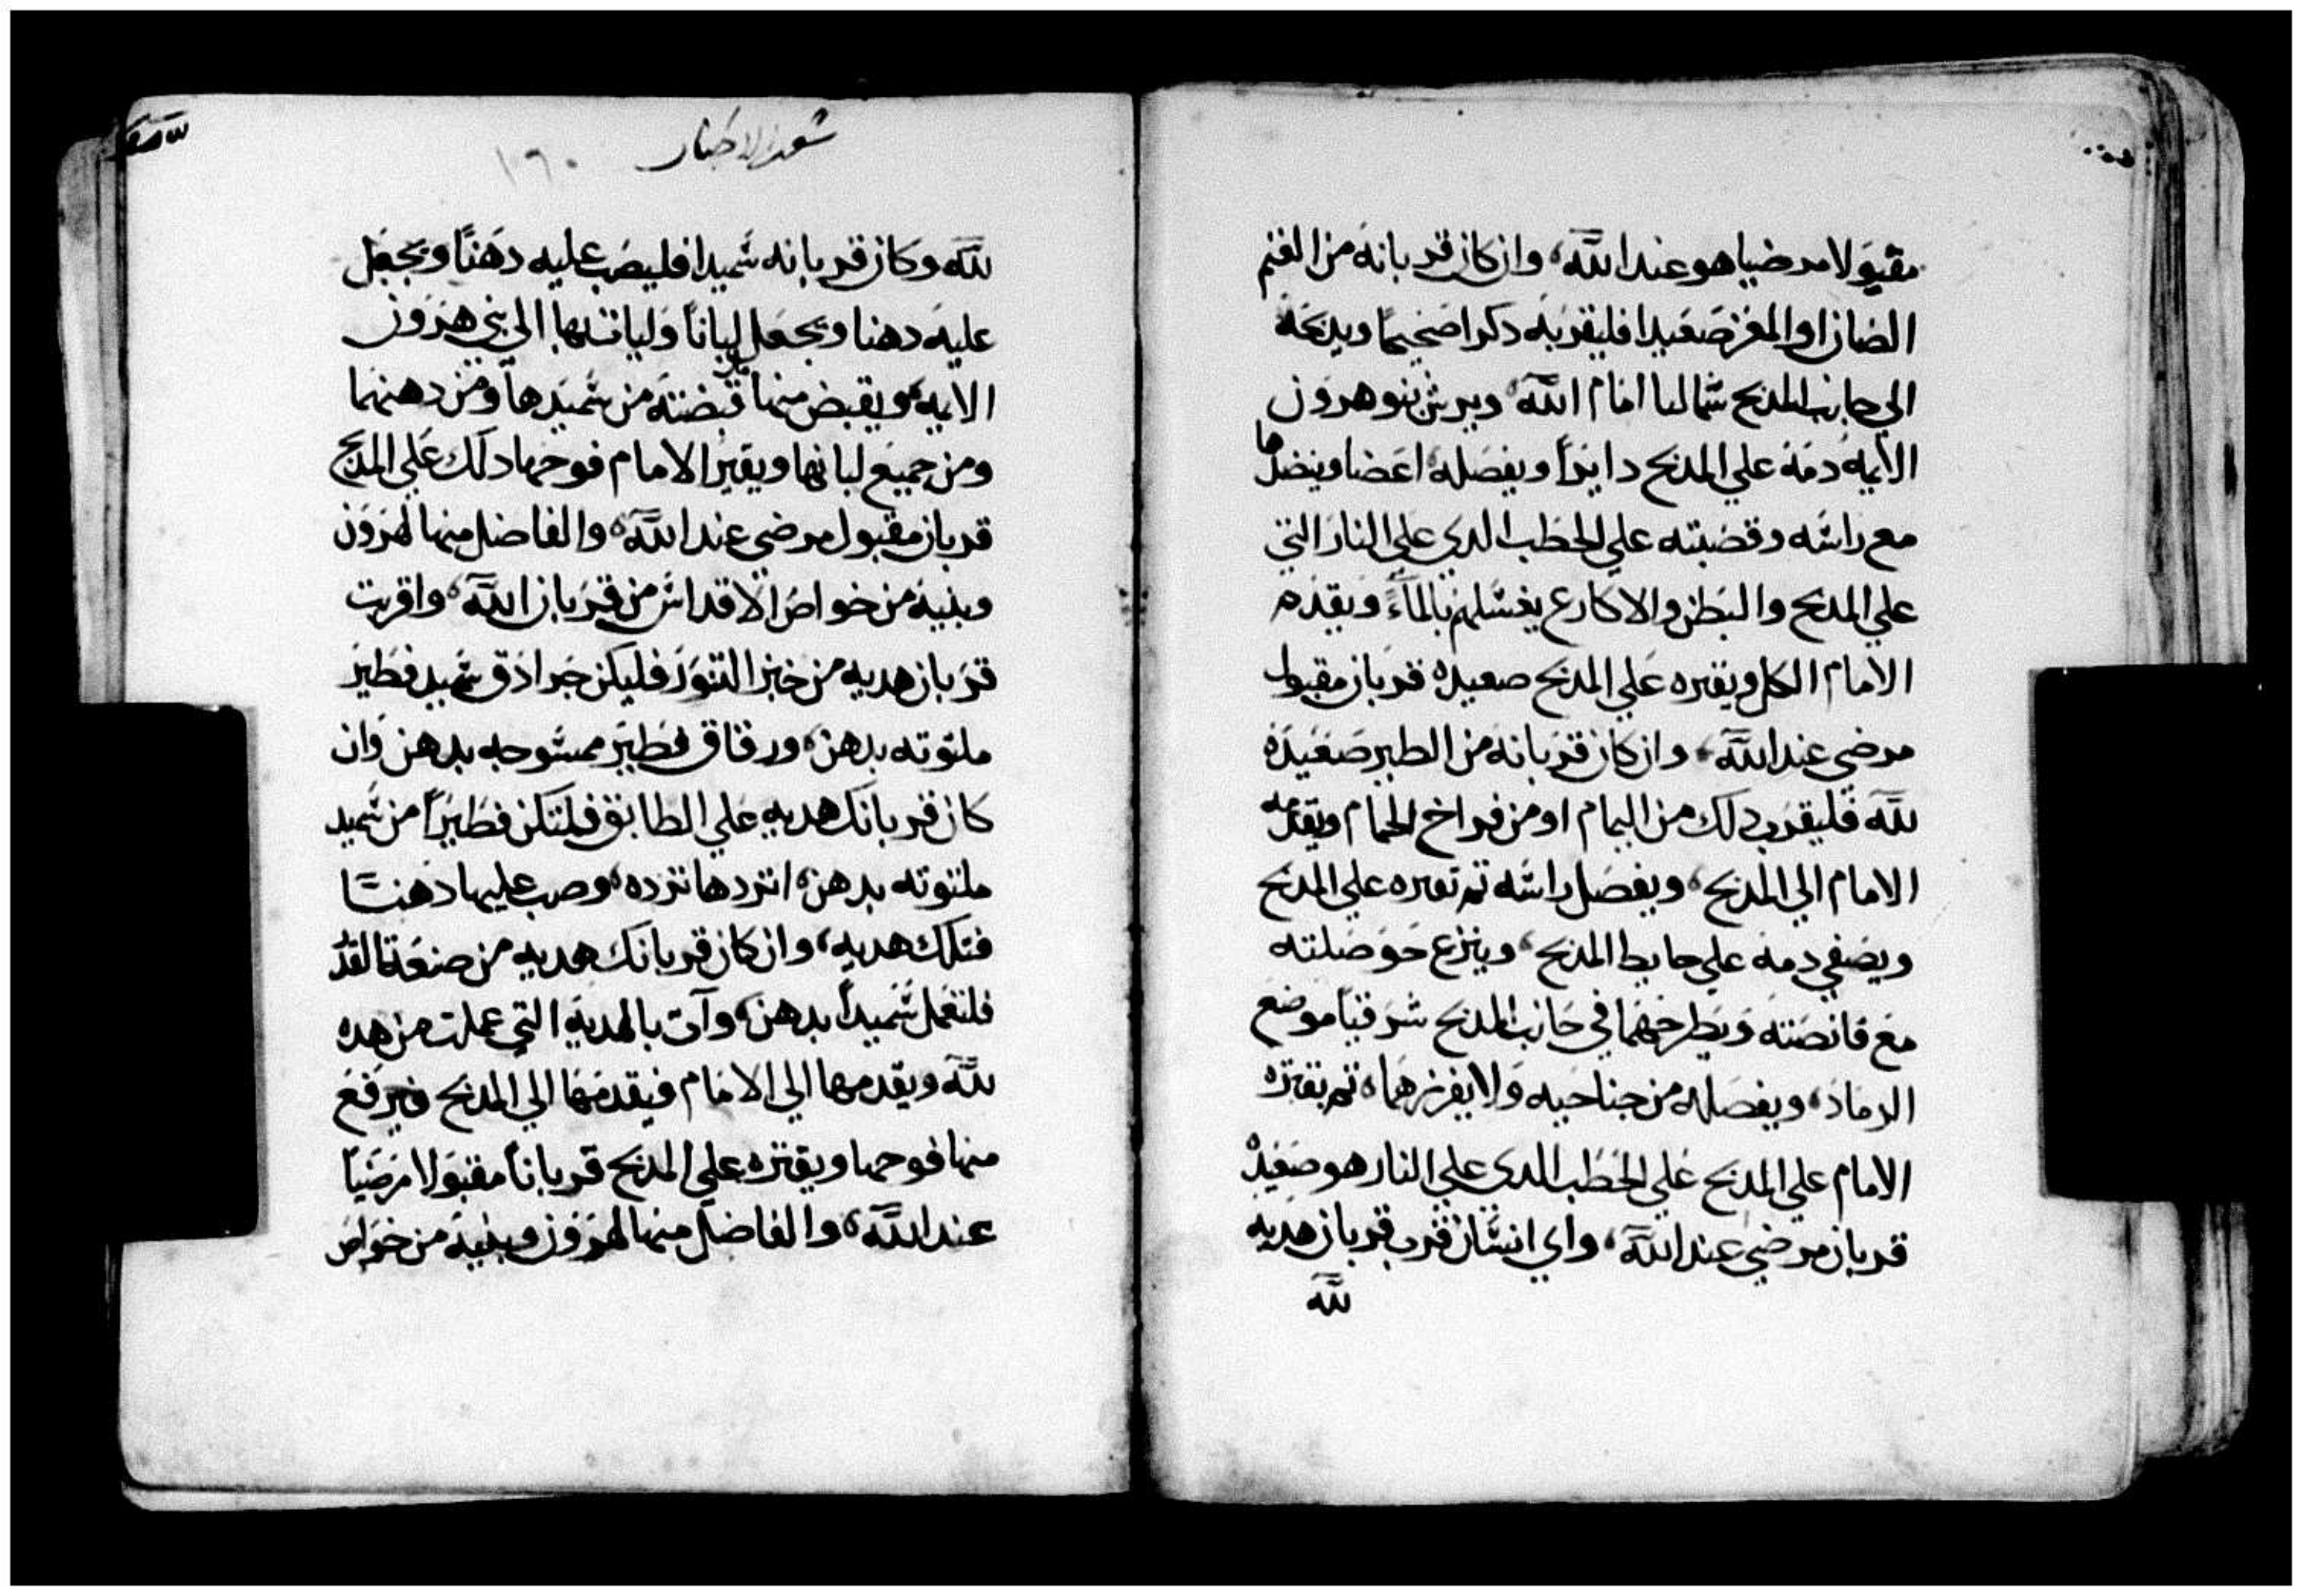 مقبولا مرضيا هو عند الله، وان كان قربانه من الغنم
الضان او المعز صعيدا فليقربه دكرا صحيحًا ويدبحه
الي جانب المدبح شماليا امام الله، ويرش بنو هرون
الايمه دمه علي المدبح دايرًا ويفصله اعضا وينضدها
مع راسه وقصبته علي الحطب الدي علي النار التي
علي المدبح والبطن والاكارع يغسلهم بالمآء ويقدم
الامام الكل ويقتره علي المدبح صعيده قربان مقبول
مرضي عند الله، وان كان قربانه من الطير صعيده
لله فليقرب دلك من اليمام او من فراخ الحمام ويقدمه
الامام الي المدبح، ويفصل راسه تم يقتره علي المدبح
ويصفي دمه علي حايط المدبح، وينزع حوصلته
مع قانصته ويطرحهما في جانب المدبح شرقيًا موضع
الرماد، ويفصله من جناحيه ولا يفرزهما، تم يقتره
الامام علي المدبح علي الحطب الدي علي النار هو صعيده
قربان مرضي عند الله، واي انسان قرب قربان هديه
لله
١٦٠
لله وكان قربانه سميدا فليصب عليه دهنًا ويجعل
عليه دهنا ويجعل لبانًا وليات بها الي بني هرون
الايمه، ويقبض منها قبضته من سميدها ومن دهنها
ومن جميع لبانها ويقتر الامام فوحها دلك علي المدبح
قربان مقبول مرضي عند الله، والفاضل منها لهرون
وبنيه من خواص الاقداس من قربان الله، وان قربت
قربان هديه من خبز التنور فليكن جرادق سميد فطير
ملتوته بدهن، ورقاق فطير ممسوحه بدهن وان
كان قربانك هديه علي الطابق فلتكن فطيرًا من سميد
ملتوته بدهن، اتردها ترده، وصب عليها دهنًا
فتلك هديه، وان كان قربانك هديه من صنعة القدر
فلتعمل سميدًا بدهن، وآت بالهديه التي عملت من هده
لله ويقدمها الي الامام فيقدمها الي المدبح فيرفع
منها فوحها ويقتره علي المدبح قربانًا مقبولا مرضيًا
عند الله، والفاضل منها لهرون وبنيه من خواص